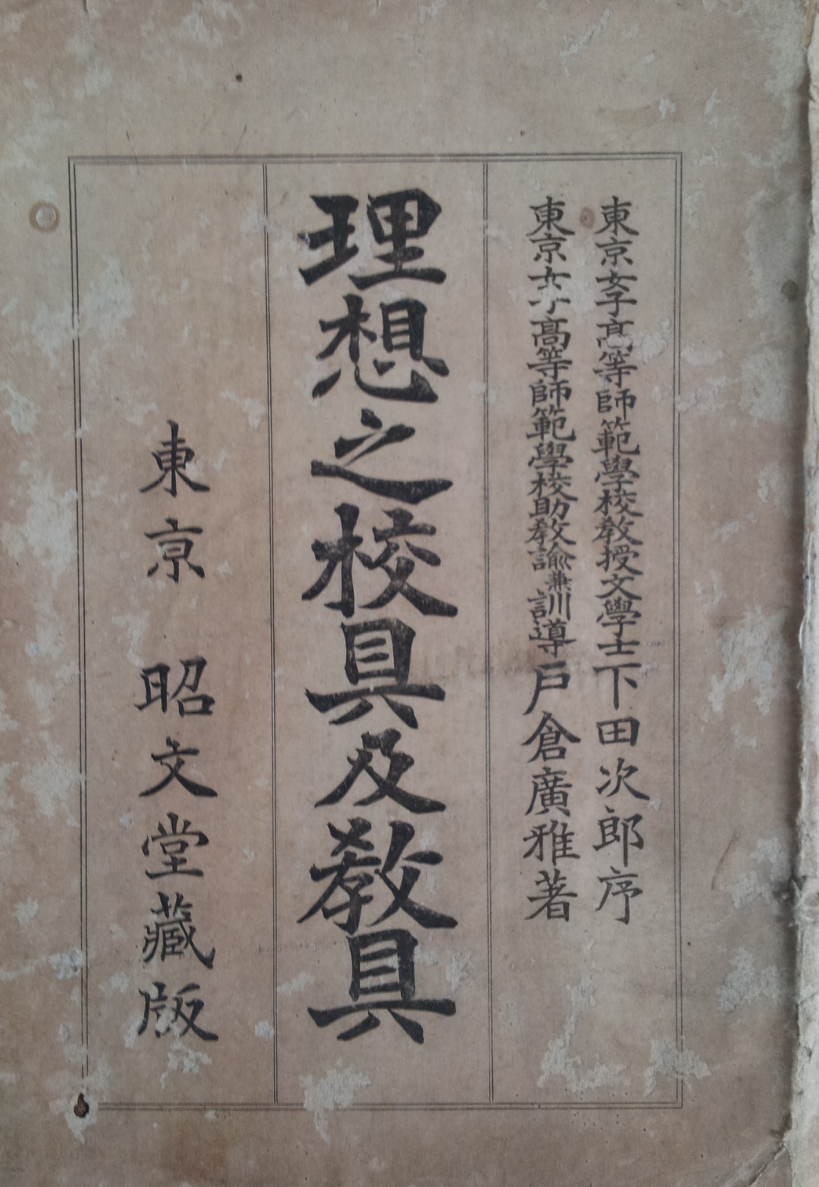 東京女子高等師範學校教授文學士下田次郎序
東京女子高等師範學校助教諭兼訓導戸倉廣雅著
理想之校具及教具
東京 昭文堂藏版